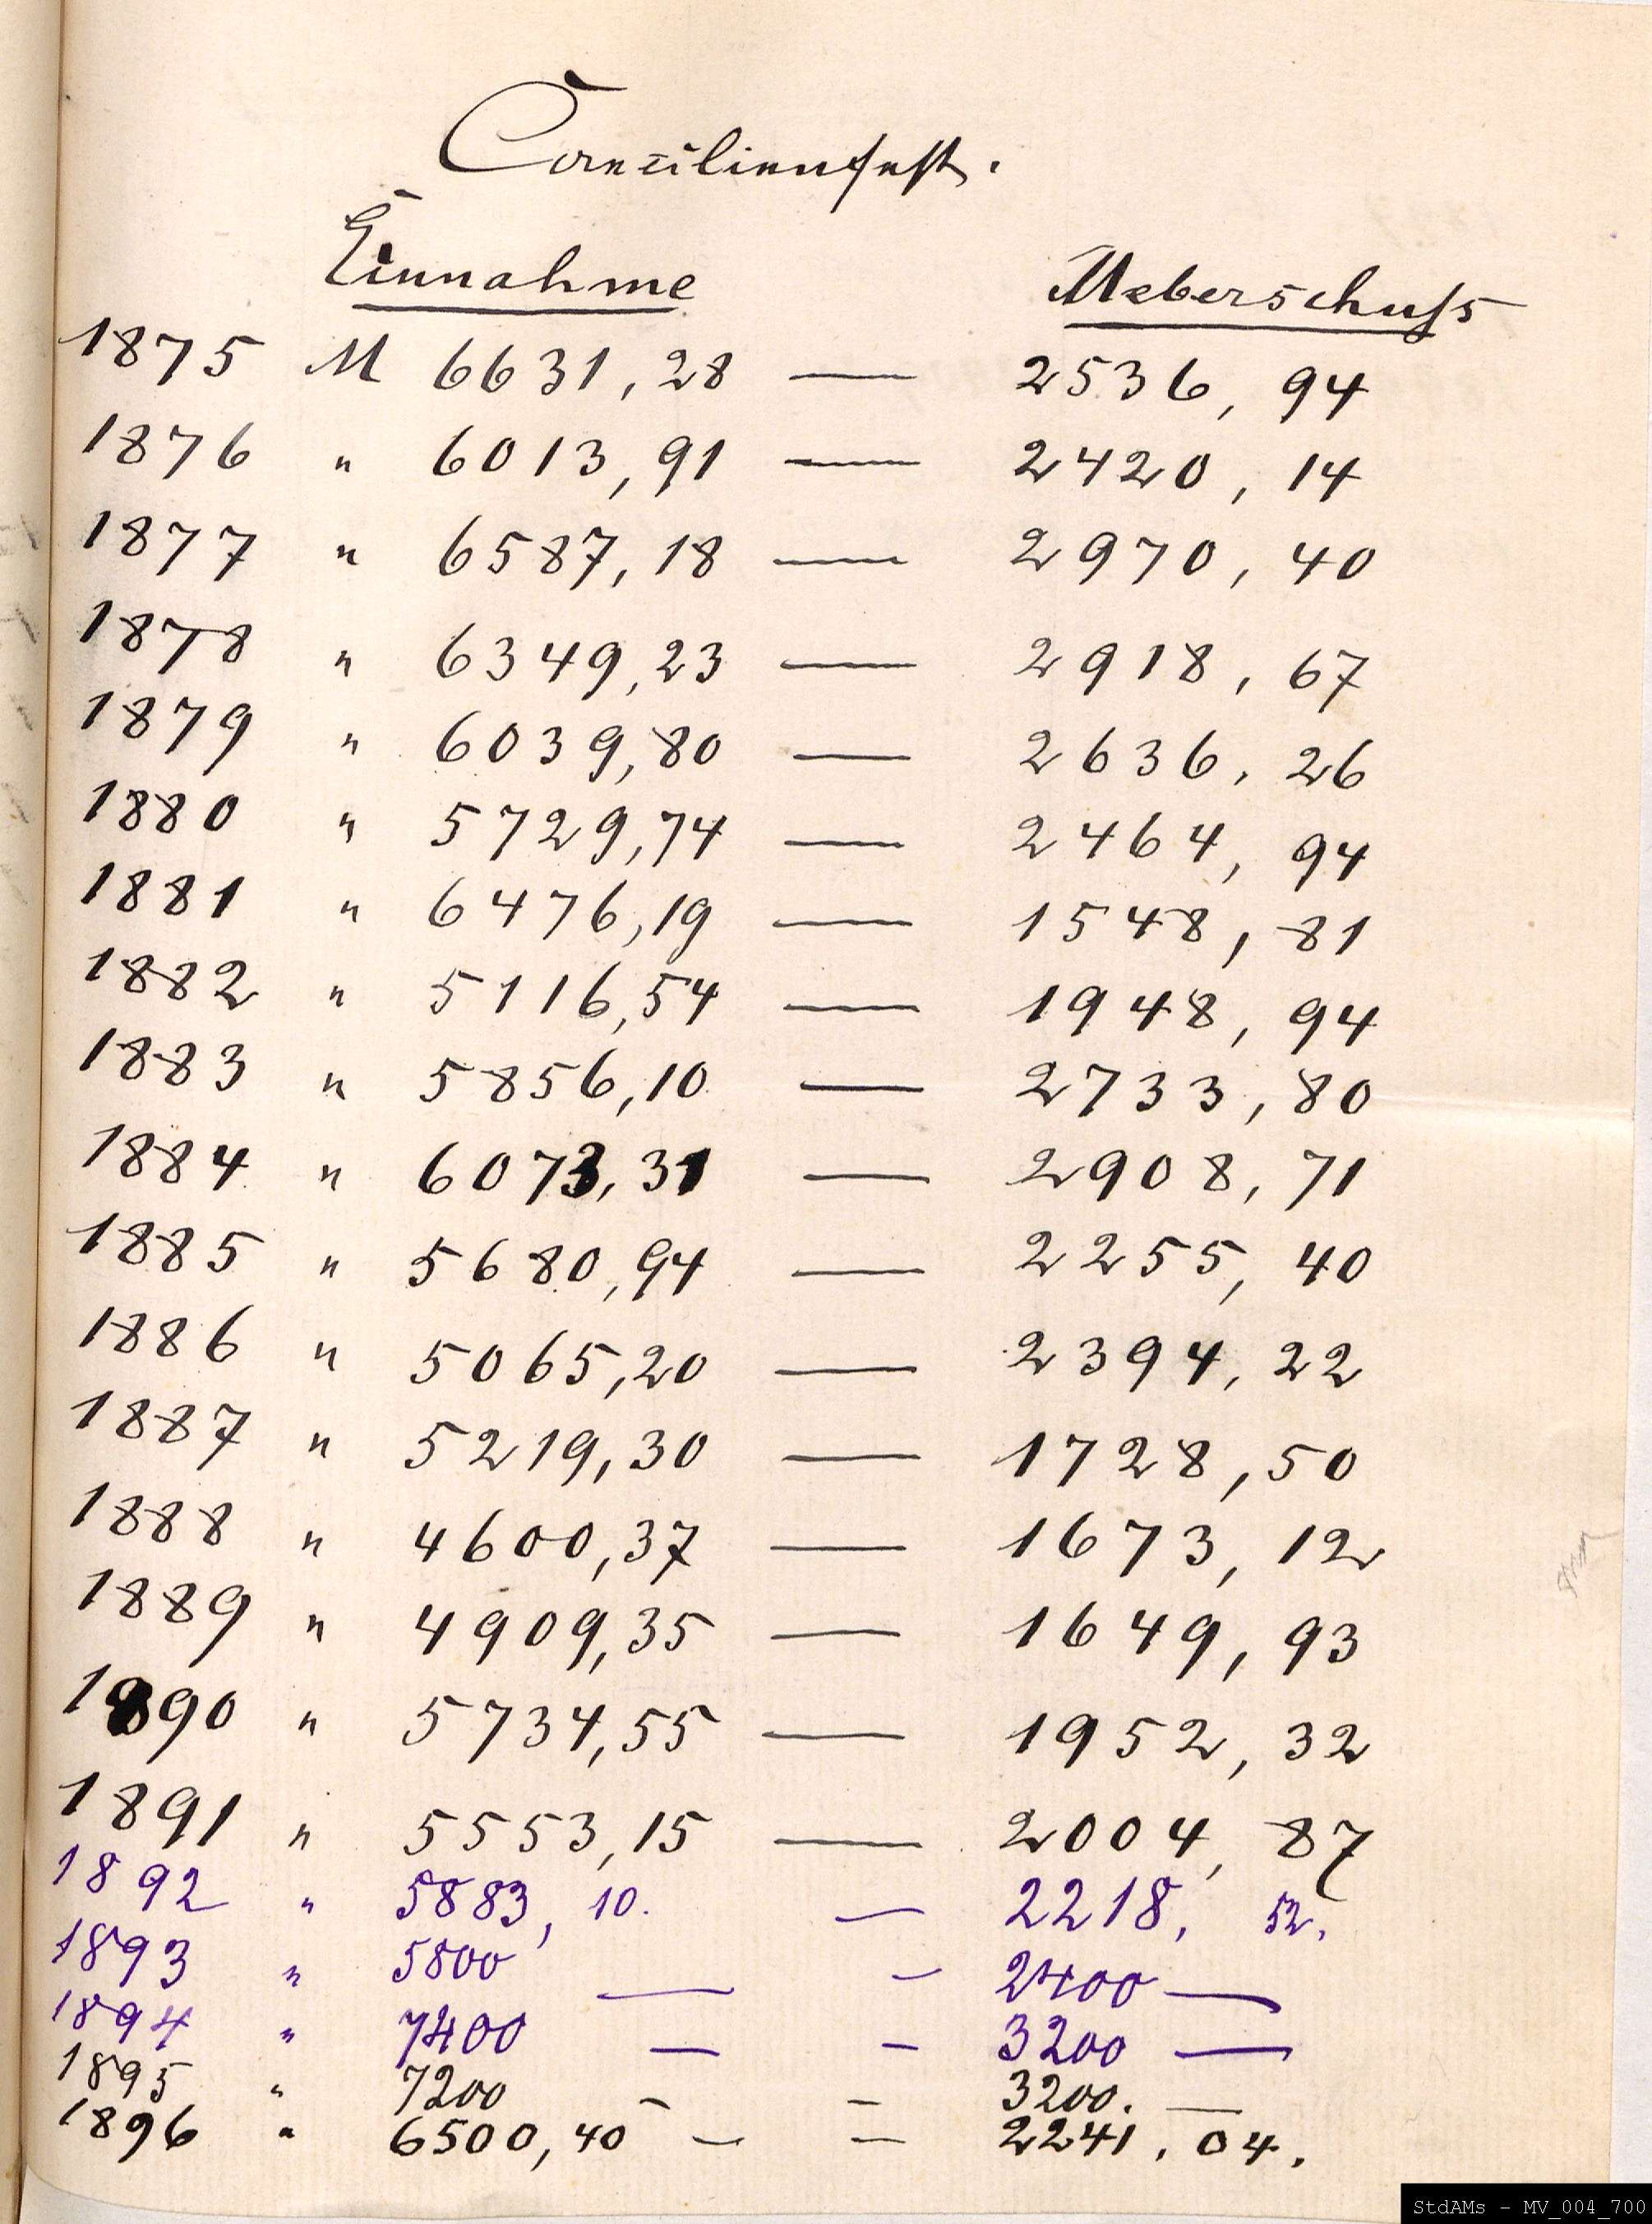 Caecilienfest.
Einnahme Ueberschuſs
1875 M 6631,28 — 2536, 94
1876 " 6013,91 — 2420, 14
1877 " 6587,18 — 2970, 40
1878 " 6349,23 — 2918, 67
1879 " 6039,80 — 2636, 26
1880 " 5729,74 — 2464, 94
1881 " 6476,19 — 1548, 81
1882 " 5116,54 — 1948, 94
1883 " 5856,10 — 2733, 80
1884 " 6073,31 — 2908, 71
1885 " 5680,94 — 2255, 40
1886 " 5065,20 — 2394, 22
1887 " 5219,30 — 1728,50
1888 " 4600,37 — 1673, 12
1889 " 4909,35 — 1649, 93
1890 " 5734,55 — 1952, 32
1891 " 5553,15 — 2004, 87
1892 " 5883, 10. — 2218, 52.
1893 " 5800 — – 2400 —
1894 " 7400 — – 3200 —
1895 " 7200 – – 3200. —
1896 " 6500,40 – – 2241. 04.
StdAMs - MV_004_700